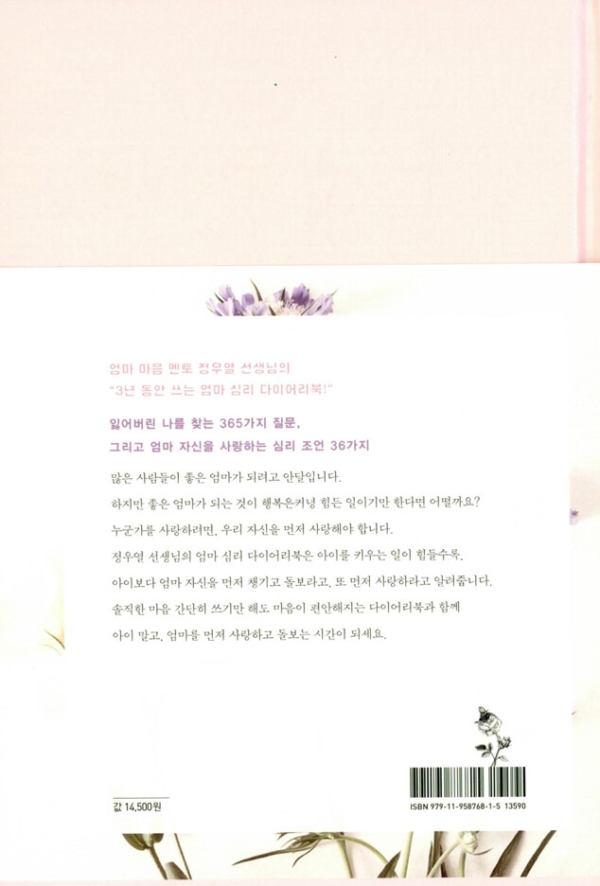 엄마 마음 멘토 정우열 선생님의
“3년 동안 쓰는 엄마 심리 다이어리북!”
잃어버린 나를 찾는 365가지 질문,
그리고 엄마 자신을 사랑하는 심리 조언 36가지
많은 사람들이 좋은 엄마가 되려고 안달입니다.
하지만 좋은 엄마가 되는 것이 행복은커녕 힘든 일이기만 한다면 어떨까요?
누군가를 사랑하려면, 우리 자신을 먼저 사랑해야 합니다.
정우열 선생님의 엄마 심리 다이어리북은 아이를 키우는 일이 힘들수록,
아이보다 엄마 자신을 먼저 챙기고 돌보라고, 또 먼저 사랑하라고 알려줍니다.
솔직한 마음 간단히 쓰기만 해도 마음이 편안해지는 다이어리북과 함께
아이 말고, 엄마를 먼저 사랑하고 돌보는 시간이 되세요.
값 14,500원
ISBN 979-11-958768-1-5 13590